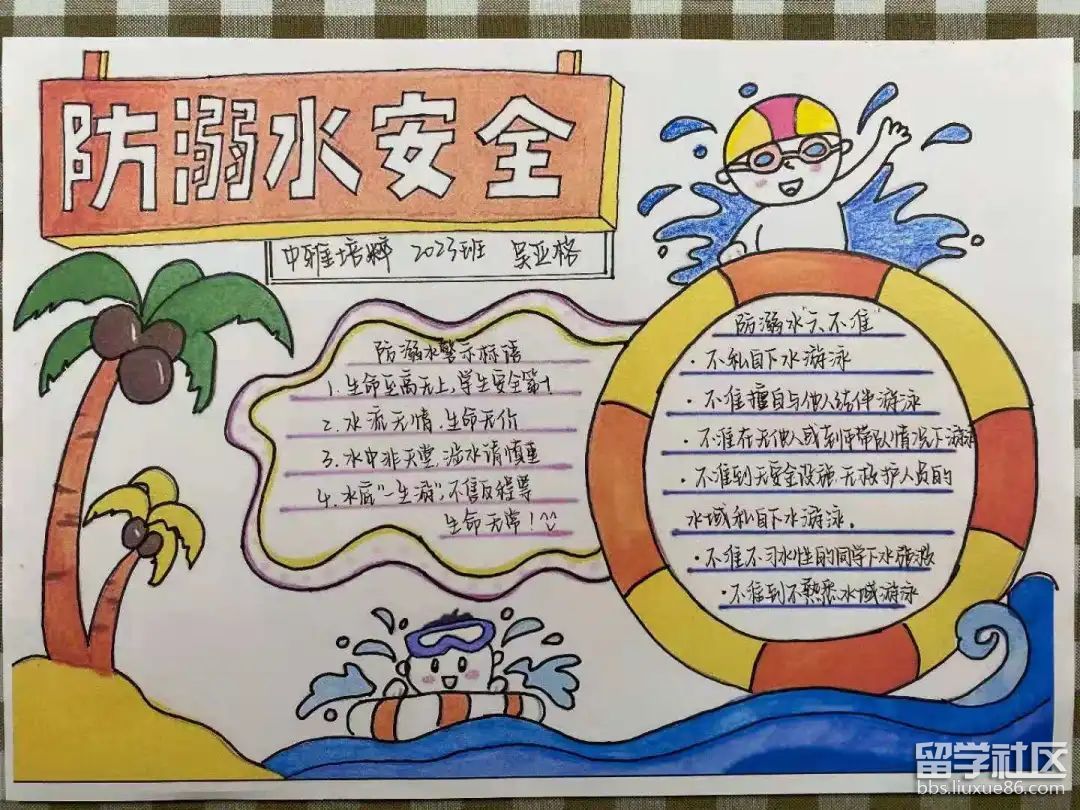 防溺水安全
中雅培粹 2023班 吴亚格
防溺水警示标语
1.生命至高无上,学生安全第1
2.水流无情.生命无价
3.水中非天堂,涉水请慎重
4.水底"一生游",不售返程票
生命无常!
防溺水"六不准"
·不私自下水游泳
·不准擅自与他人结伴游泳
·不准在无他人或老师带队情况下游泳
·不准到无安全设施.无救护人员的
水域私自下水游泳.
·不准不习水性的同学下水施救
·不准到不熟悉水域游泳
留学社区
bbs.liuxue86.com